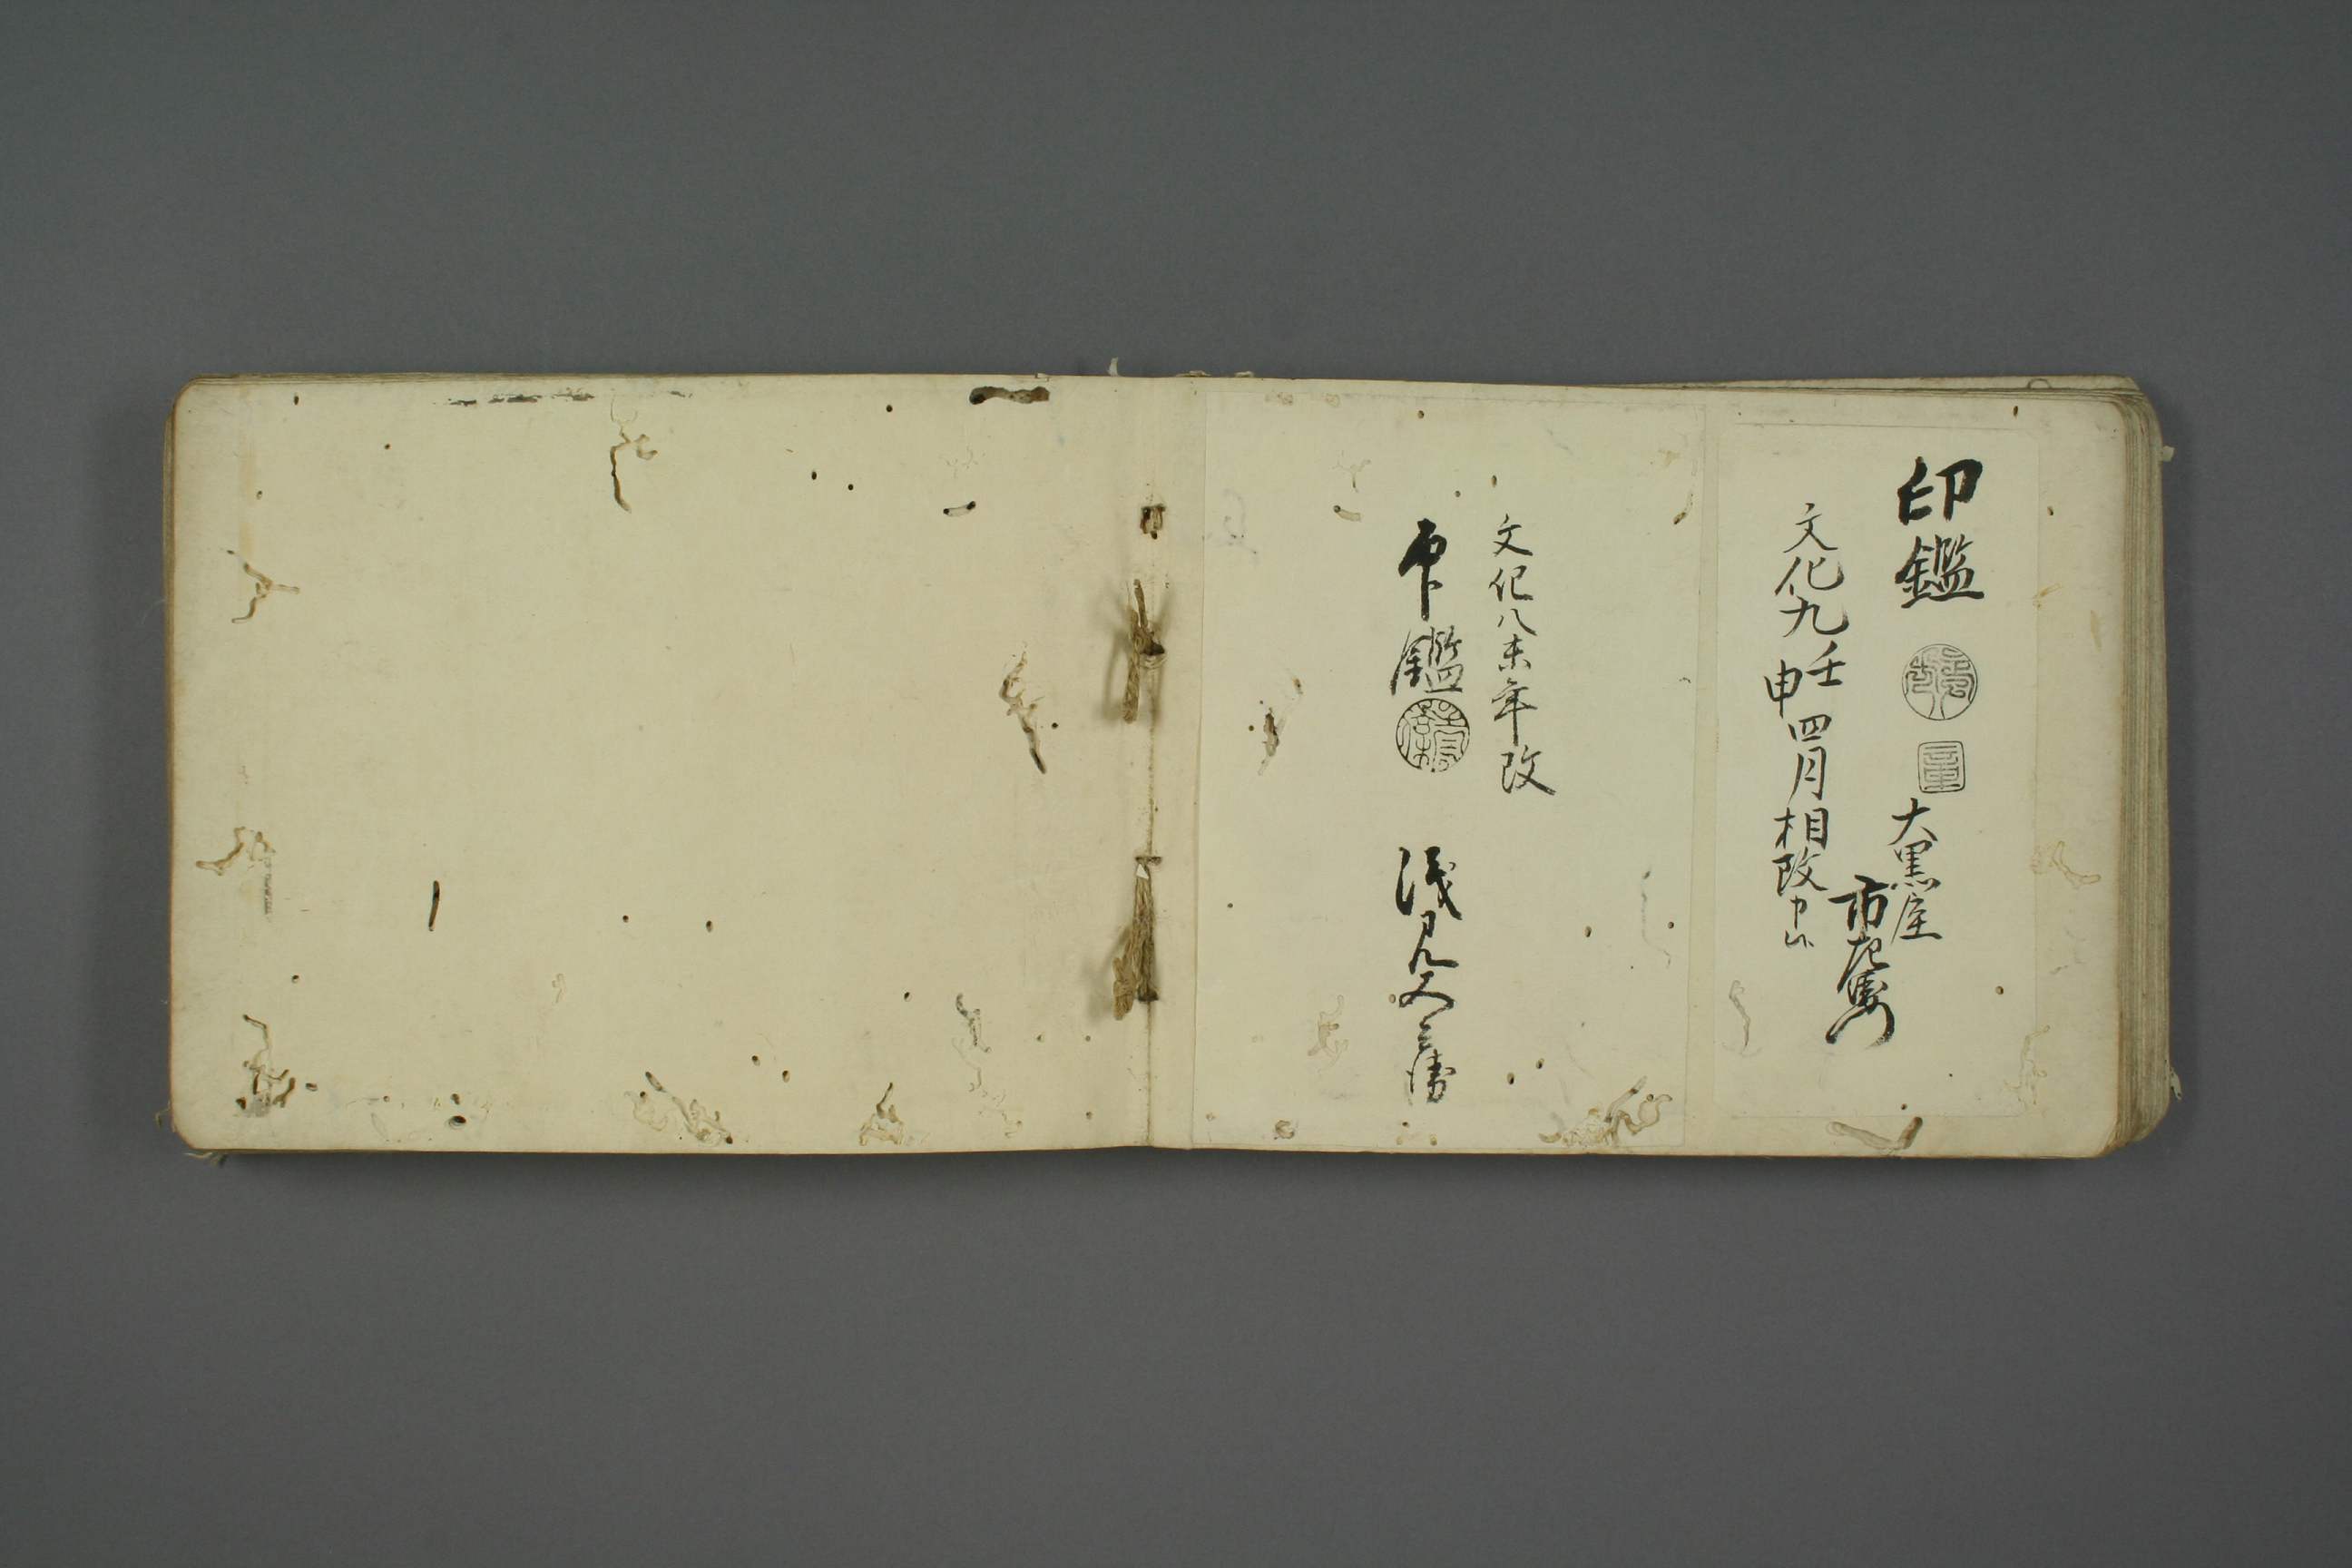 印鑑
大黒屋
市左衛門
文化九壬申四月相改申候
文化八未年改
印鑑
浅見又三